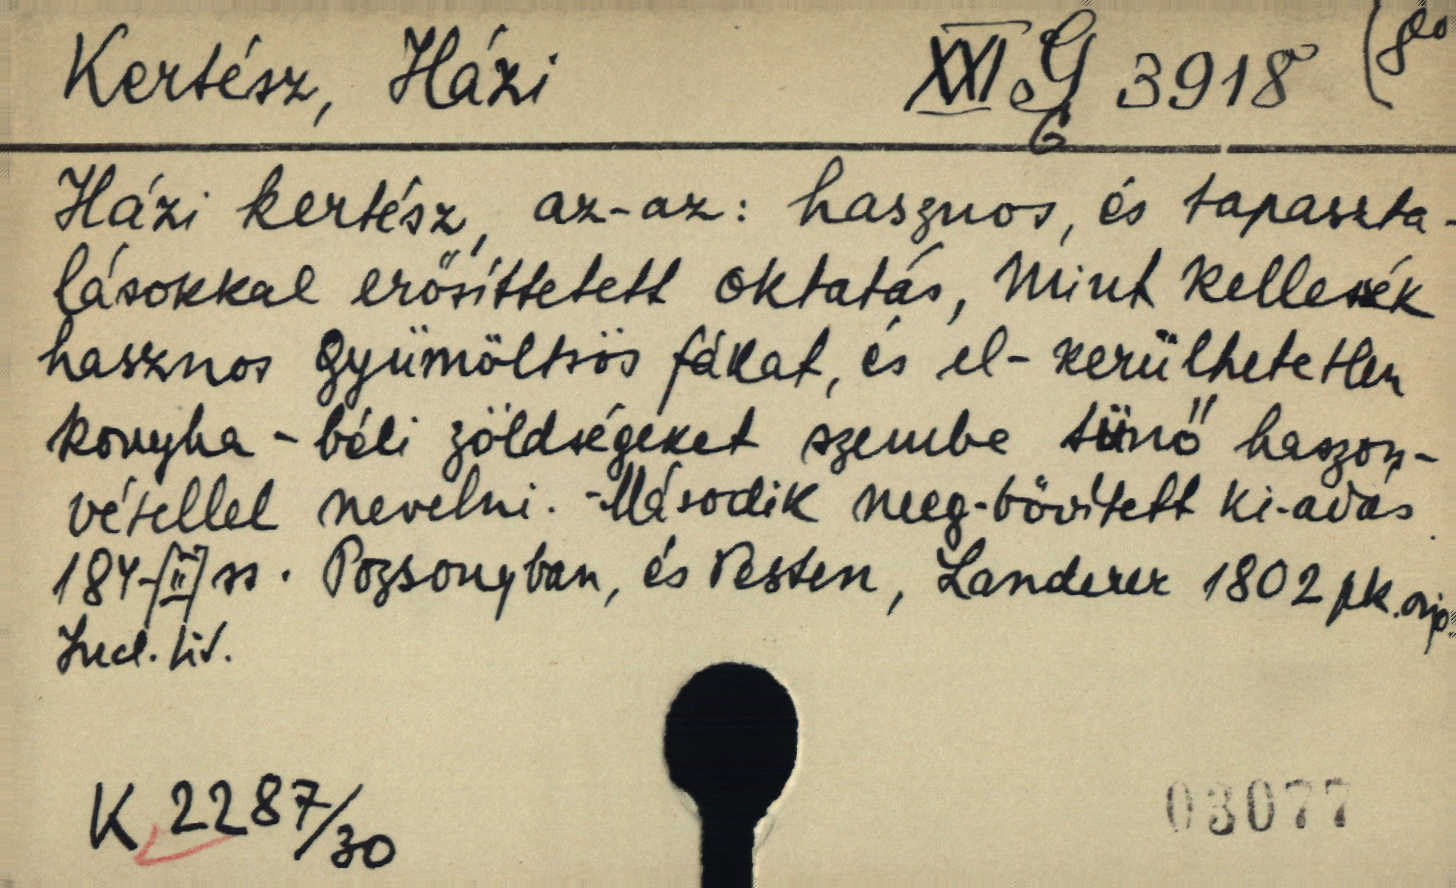 Kertész, Házi XXI G 3918 (8o
G
Házi kertész, az-az: hasznos, és tapaszta-
lásokkal erősíttetett oktatás, Mint kellessék
hasznos gyümöltsös fákat, és el-kerülhetetlen
konyha-béli zöldségeket szembe tünő haszon-
vétellel nevelni. - Második meg-bővített ki-adás
184 [II] ss. Pozsonyban, és Pesten, Landerer 1802 pk.
Lit.
K 2287/30
03077